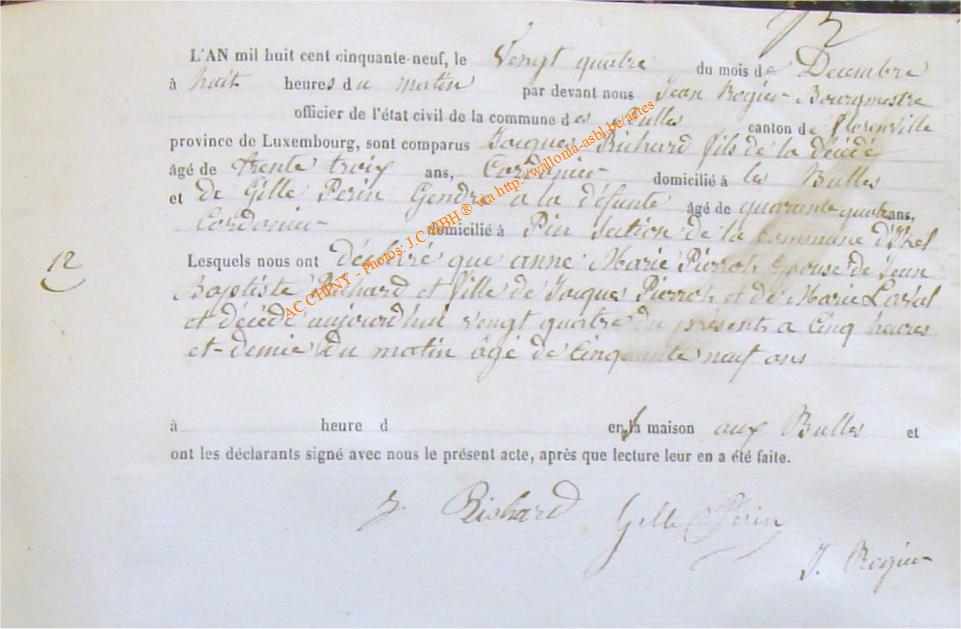 12
L'AN mil huit cent cinquante-neuf, le Vengt quatre du mois de Decembre
à huit heures du matin par devant nous Jean Rogier Bourgmestre
officier de l'état civil de la commune des Bulles canton de florenville
province de Luxembourg, sont comparus Jacques Richard fils de la décédé
âgé de trente troix ans, Cordonier domicilié à les Bulles
et de Gille Perin Gendre a la défunte âgé de quarante quatre ans,
Cordonier domicilié à Pin Section de la Commune d'Izel
12
Lesquels nous ont déclaré que anne Marie Pierrot epouse de Jean
Baptiste Richard et fille de Jacques Pierrot et de Marie
et décédé aujourdhui vengt quatre du présent a Cinq heures
et demie du matin âgé de Cinquante neuf ans
à heure d en sa maison aux Bulles et
ont les déclarants signé avec nous le présent acte, après que lecture leur en a été faite.
J. Richard Gille Perin
J. Rogier
AC CHINY - Photos: J.C MBH ® via http://wallonia-asbl.be/actes